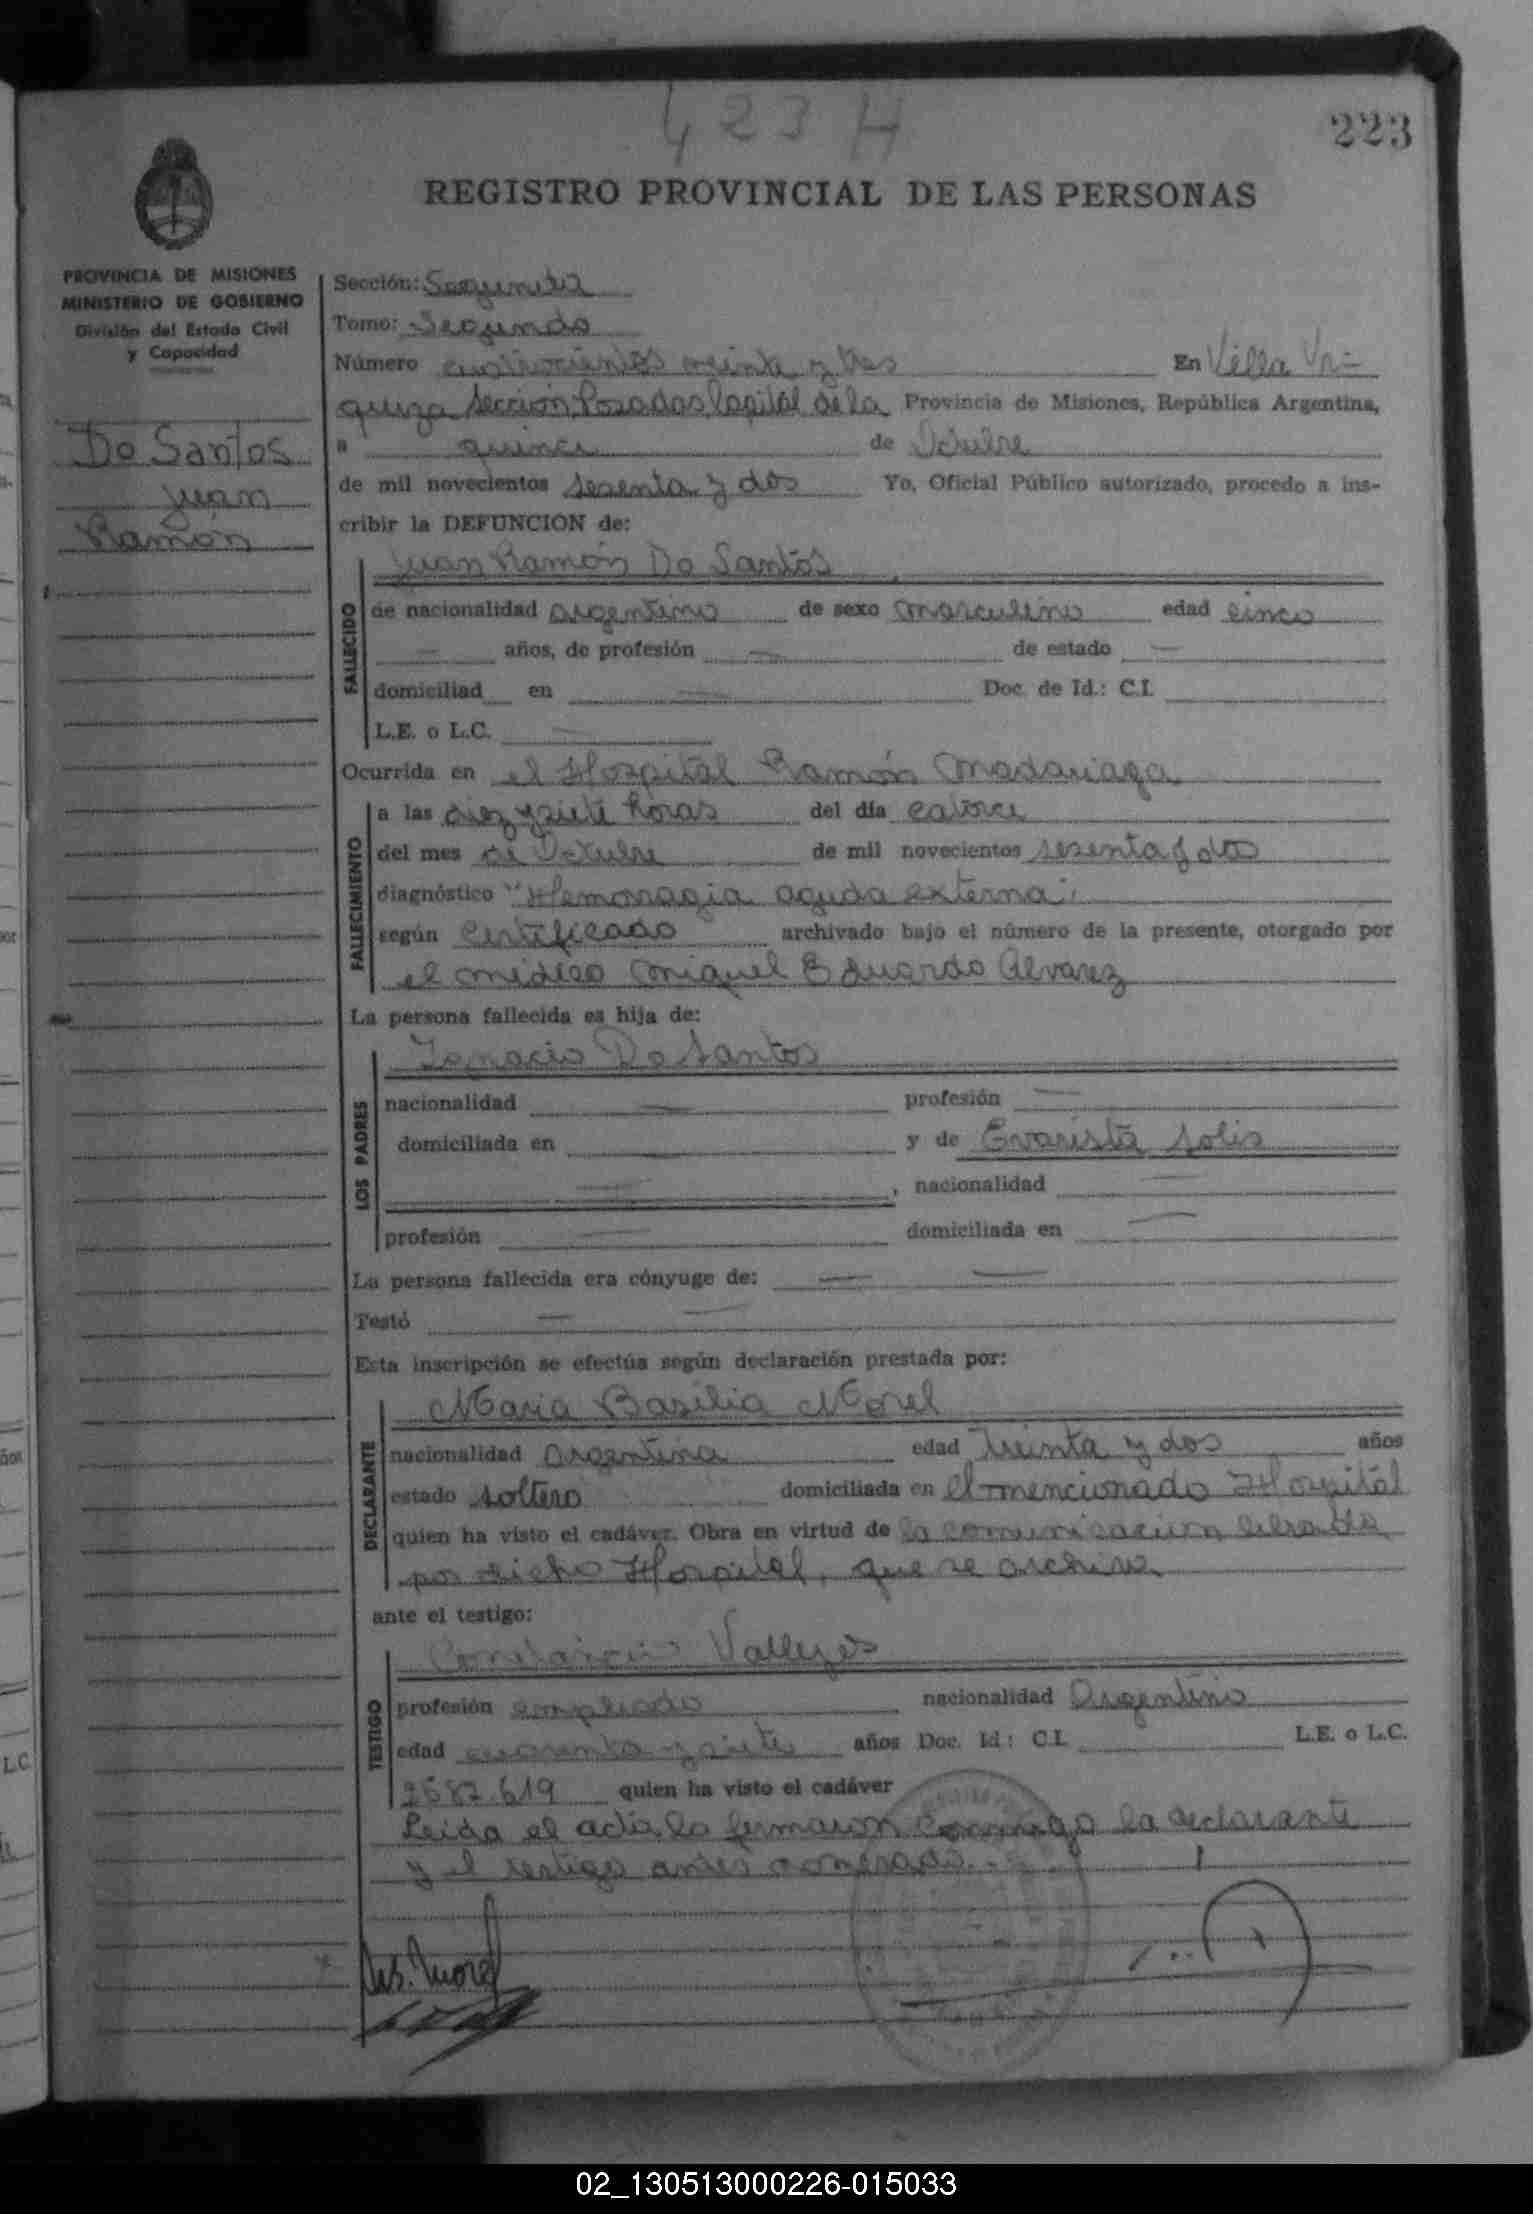 423 H
223
REGISTRO PROVINCIAL DE LAS PERSONAS
PROVINCIA DE MISIONES
MINISTERIO DE GOBIERNO
División del Estado Civil
y Capacidad
Do Santos
Juan
Ramón
Sección: Segunda
Tomo: Segundo
Número cuatrocientos veinte y tres En Villa Ur-
quiza Sección Posadas, Capital de la Provincia de Misiones, República Argentina,
a quince de Octubre
de mil novecientos sesenta y dos Yo, Oficial Público autorizado, procedo a ins-
cribir la DEFUNCION de:
Juan Ramón Do Santos
FALLECIDO
de nacionalidad argentino de sexo masculino edad cinco
— años, de profesión — de estado —
domiciliad en — Doc. de Id.: C.I.
L.E. o L.C. —
Ocurrida en el Hospital Ramón Madariaga
FALLECIMIENTO
a las diez y siete horas del día catorce
del mes de Octubre de mil novecientos sesenta y dos
diagnóstico "Hemorragia aguda externa"
según certificado archivado bajo el número de la presente, otorgado por
el médico Miguel Eduardo Alvarez
La persona fallecida es hija de:
Ignacio Do Santos
LOS PADRES
nacionalidad — profesión —
domiciliada en — y de Evarista Solis
—, nacionalidad —
profesión — domiciliada en —
La persona fallecida era cónyuge de: — —
Testó — —
Esta inscripción se efectúa según declaración prestada por:
Maria Basilia Morel
DECLARANTE
nacionalidad argentina edad treinta y dos años
estado soltero domiciliada en el mencionado Hospital
quien ha visto el cadáver. Obra en virtud de la comunicacion librada
por dicho Hospital, que se archiva.
ante el testigo:
Constancio Vallejos
TESTIGO
profesión empleado nacionalidad argentino
edad cuarenta y siete años Doc. Id: C.I. L.E. o L.C.
2587.619 quien ha visto el cadáver
Leida el acta, la firmaron conmigo la declarante
y el testigo antes nombrado.
Morel
02_130513000226-015033